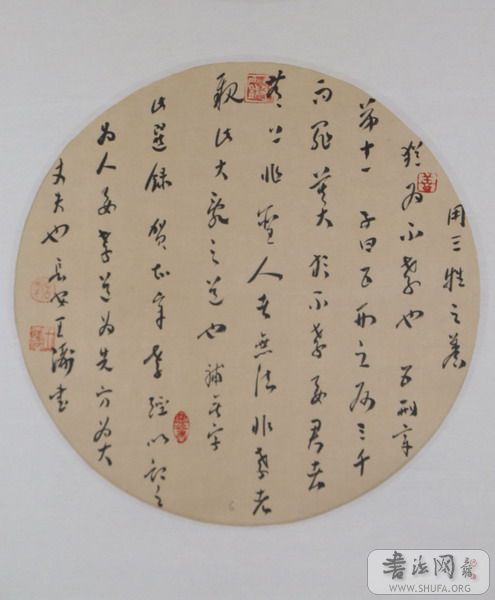 用三牲之養
猶為不孝也 五刑章
第十一 子曰五刑之屬三千
而罪莫大於不孝要君者
無上非聖人者無法非孝者
親此大亂之道也 補無字
此選錄賀知章孝經以記之
為人要孝道為先方為大
丈夫也 長安王書
書法网
WWW.SHUFA.ORG